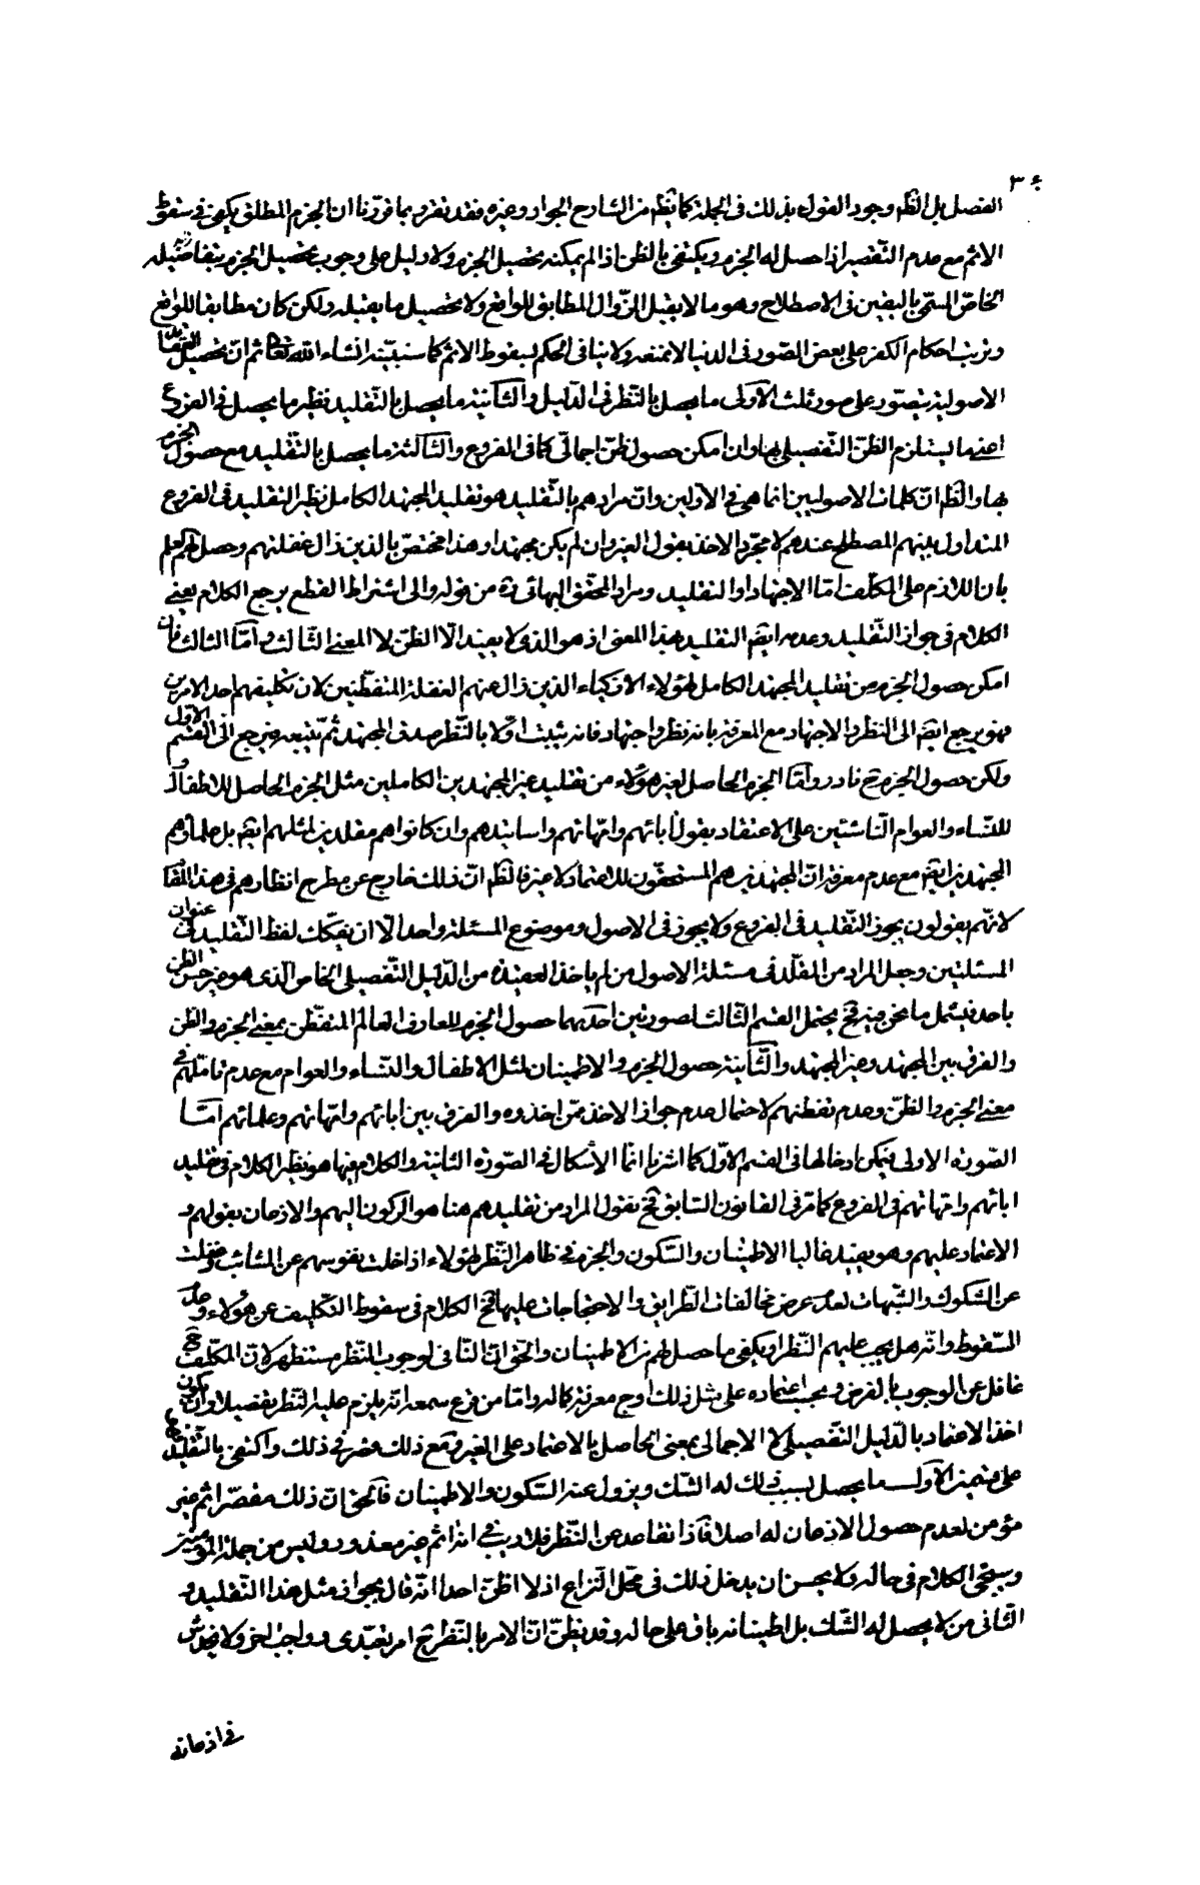 الفصل بل الظ وجود القول بذلك في الجملة كما يظهر من الشارح الجواد وغيره فقد تقرر بما قررنا ان الجزم المطلق يكفي في سقوط
الاثم مع عدم التقصير اذا حصل له الجزم ويكتفي بالظن اذا لم يمكنه تحصيل الجزم ولا دليل على وجوب تحصيل الجزم
الخاص المسمى باليقين في الاصطلاح وهو ما لا يقبل الزوال المطابق للواقع ولا تحصيل ما يقبله ولكن كان مطابقا للواقع
وترتب احكام الكفر على بعض الصور في الدنيا لا نمنعه ولا ينافي الحكم بسقوط الاثم كما سنبينه انشاء الله تعالى ثم ان تحصيل العقائد
الاصولية يتصور على صور ثلث الاولى ما يحصل بالنظر في الدليل والثانية ما يحصل بالتقليد نظير ما يحصل في الفروع
اعني ما يستلزم الظن التفصيلي بها وان امكن حصول ظن اجمالي كما في الفروع والثالثة ما يحصل بالتقليد مع حصول الجزم
بها والظ ان كلمات الاصوليين انما هي في الاولين وان مرادهم بالتقليد هو تقليد المجتهد الكامل نظير التقليد في الفروع
المتداول بينهم المصطلح عندهم لا مجرد الاخذ بقول الغير وان لم يكن مجتهدا وهذا مختص بالذين زال غفلتهم وحصل لهم العلم
بان اللازم على المكلف اما الاجتهاد او التقليد ومراد المحقق البهائي ره من قوله والى اشتراط القطع يرجع الكلام يعني
الكلام في جواز التقليد وعدمه ايض التقليد بهذا المعنى اذ هو الذي لا يفيد الا الظن لا المعنى الثالث واما الثالث فان
امكن حصول الجزم من تقليد المجتهد الكامل لهؤلاء الاذكياء الذين زال عنهم الغفلة المتفطنين لان تكليفهم احد الامرين
فهو يرجع ايض الى النظر والاجتهاد مع المعرفة بانه نظر واجتهاد فانه يثبت اولا بالنظر صدق المجتهد ثم يتبعه فيرجع الى القسم الاول
ولكن حصول الجزم ح نادر واما الجزم الحاصل لغير هؤلاء من تقليد غير المجتهدين الكاملين مثل الجزم الحاصل للاطفال و
للنساء والعوام الناشئين على الاعتقاد بقول ابائهم وامهاتهم واساتيدهم وان كانوا هم مقلدين امثلهم ايض بل علماؤهم
المجتهدين ايض مع عدم معرفة ان المجتهدين هم المستحقون للاعتماد لا غير فالظ ان ذلك خارج عن مطرح انظارهم في هذا المقام
لانهم يقولون يجوز التقليد في الفروع ولا يجوز في الاصول وموضوع المسئلة واحد الا ان يفكك لفظ التقليد في عنوان
المسئلتين وجعل المراد من المقلد في مسئلة الاصول من لم ياخذ العقيدة من الدليل التفصيلي الخاص الذي هو غير حسن الظن
باحد فيشمل ما نحن فيه فح يحتمل القسم الثالث لصورتين احديهما حصول الجزم للعارف العالم المتفطن بمعنى الجزم والظن
والفرق بين المجتهد وغير المجتهد والثانية حصول الجزم والاطمينان لمثل الاطفال والنساء والعوام مع عدم تاملهم في
معنى الجزم والظن وعدم تفطنهم لاحتمال عدم جواز الاخذ ممن اخذوه والفرق بين ابائهم وامهاتهم وعلمائهم اما
الصورة الاولى فيمكن ادخالها في القسم الاول كما اشرنا انما الاشكال في الصورة الثانية والكلام فيها هو نظير الكلام في تقليد
ابائهم وامهاتهم في الفروع كما مر في القانون السابق فح نقول المراد من تقليدهم هنا هو الركون اليهم والاذعان بقولهم و
الاعتماد عليهم وهو يفيد غالبا الاطمينان والسكون والجزم في ظاهر النظر لهؤلاء اذا خلت نفوسهم عن الشائب وغفلت
عن الشكوك والشبهات لعدم عرض مخالفات الطرايق والاحتجاجات عليها فح الكلام في سقوط التكليف عن هؤلاء وعدم
السقوط وانه هل يجب عليهم النظر او يكفي ما حصل لهم من الاطمينان والحق ان الثاني لوجوب النظر مستظهر لان المكلف ح
غافل عن الوجوب بالفرض ويجب اعتماده على مثل ذلك اوج معرفة كماله واما من قرع سمعه انه يلزم عليه النظر تفصيلا وان يكون
اخذ الاعتماد بالدليل التفصيلي لا الاجمالي بمعنى الحاصل بالاعتماد على الغير ومع ذلك قصر في ذلك واكتفى بالتقليد فهو
على قسمين الاول ما يحصل بسبب ذلك له الشك ويزول عنه السكون والاطمينان فالحق ان ذلك مقصر اثم غير
مؤمن لعدم حصول الاذعان له اصلا فاذا تقاعد عن النظر فلا ريب في انه اثم غير معذور وليس من جملة المؤمنين
وسيجئ الكلام في حاله ولا يحسن ان يدخل ذلك في محل النزاع اذ لا اظن احدا انه قال بجواز مثل هذا التقليد و
الثاني من لا يحصل له الشك بل اطمينانه باق على حاله وقد يظن ان الامر بالنظر ح امر تعبدي وواجب اخر ولا يخدش
في اذعانه